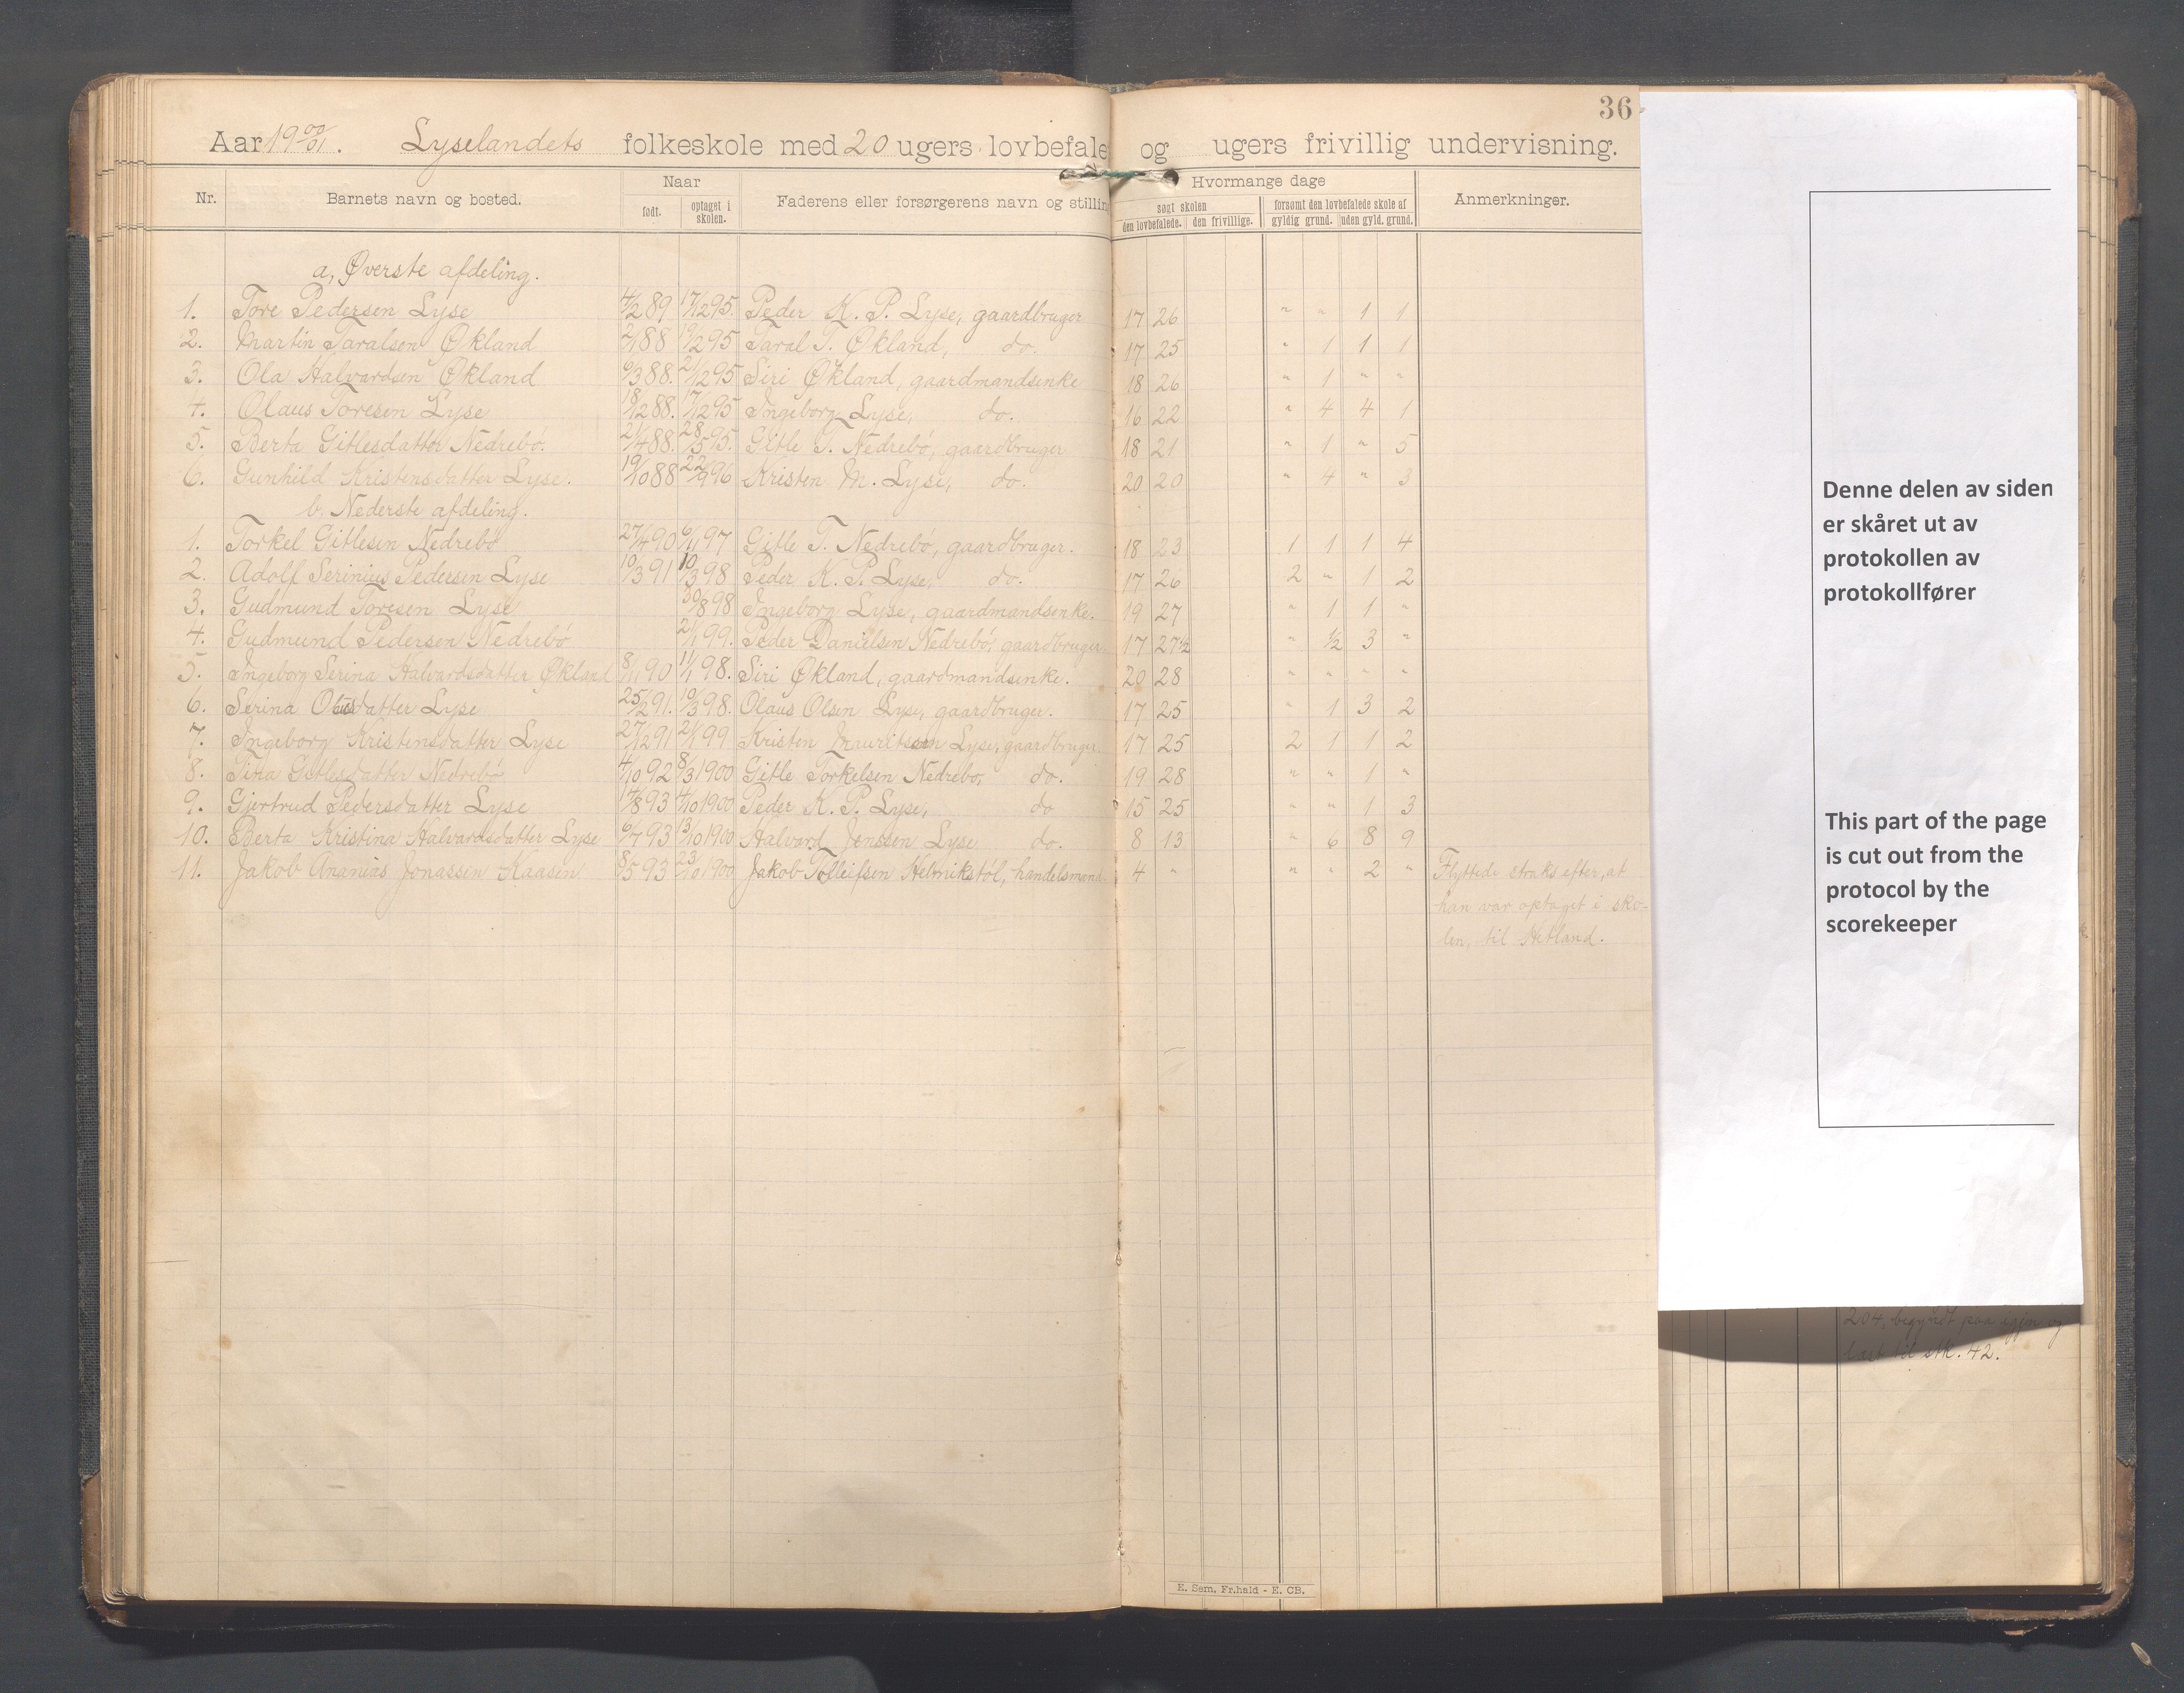 36
Aar 19 00/01. Lyselandets folkeskole med 20 ugers lovbefale og ugers frivillig undervisning.
Nr. Barnets navn og bosted. Naar Faderens eller forsørgerens navn og stilling Hvormange dage Anmerkninger.
født. optaget i skolen. søgt skolen forsømt den lovbefalede skole af
den lovbefalede. den frivillige. gyldig grund. uden gyld. grund.
a, Øverste afdeling.
1. Tore Pedersen Lyse 4/2 89 17/12 95. Peder K. P. Lyse, gaardbruger 17 26 " " 1 1
2. Martin Taralsen Økland 2/1 88 19/2 95 Taral T. Økland, do. 17 25 " 1 1 1
3. Ola Halvardsen Økland 6/3 88. 21/2 95 Siri Økland, gaardmandsenke 18 26 " 1 " "
4. Olaus Toresen Lyse 18/12 88. 17/12 95 Ingeborg Lyse, do. 16 22 " 4 4 1
5. Berta Gitlesdatter Nedrebø. 21/4 88. 28/5 95. Gitle T. Nedrebø, gaardbruger 18 21 " 1 " 5
6. Gunhild Kristensdatter Lyse. 19/10 88 22/9 96 Kristen M. Lyse, do. 20 20 " 4 " 3
b. Nederste afdeling.
1. Torkel Gitlesen Nedrebø 27/4 90 6/11 97 Gitle T. Nedrebø, gaardbruger. 18 23 1 1 1 4
2. Adolf Serinius Pedersen Lyse 10/3 91 10/3 98 Peder K. P. Lyse, do. 17 26 2 " 1 2
3. Gudmund Toresen Lyse 30/8 98 Ingeborg Lyse, gaardmandsenke. 19 27 " 1 1 "
4. Gudmund Pedersen Nedrebø 21/1 99. Peder Danielsen Nedrebø, gaardbruger. 17 27½ " ½ 3 "
5. Ingeborg Serina Halvardsdatter Økland 8/11 90 11/1 98. Siri Økland, gaardmandsenke. 20 28 " " " "
6. Serina Olausdatter Lyse 25/2 91. 10/3 98. Olaus Olsen Lyse, gaardbruger. 17 25 " 1 3 2
7. Ingeborg Kristensdatter Lyse 27/12 91 2/1 99 Kristen Mauritsen Lyse, gaardbruger. 17 25 2 1 1 2
8. Tina Gitlesdatter Nedrebø 4/10 92 8/3 1900 Gitle Torkelsen Nedrebø, do. 19 28 " " 1 "
9. Gjertrud Pedersdatter Lyse 17/8 93 4/10 1900 Peder K. P. Lyse, do 15 25 " " 1 3
10. Berta Kristina Halvardsdatter Lyse 6/7 93 13/10 1900 Halvard Jenssen Lyse do. 8 13 " 6 8 9
11. Jakob Ananias Jonassen Kaasen 8/5 93 23/10 1900 Jakob Tolleifsen Helmikstøl, handelsmand. 4 " " " 2 " Flyttede straks efter, at
han var optaget i sko-
len, til Hetland.
E. Sem, Fr.hald - E. CB.
Denne delen av siden
er skåret ut av
protokollen av
protokollfører
This part of the page
is cut out from the
protocol by the
scorekeeper
204, begyndt paa igjen og
læst til stk. 42.